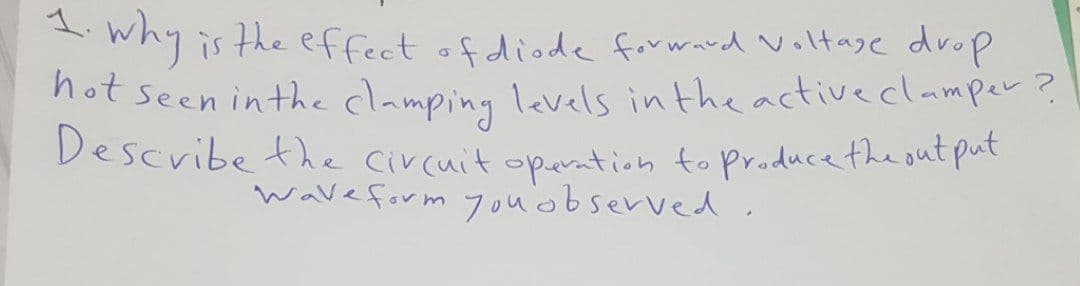 1. why is the effect of diode forward voltage drop
not seen in the clamping levels in the active clamper?
Describe the circuit operation to produce the output
waveform you observed.